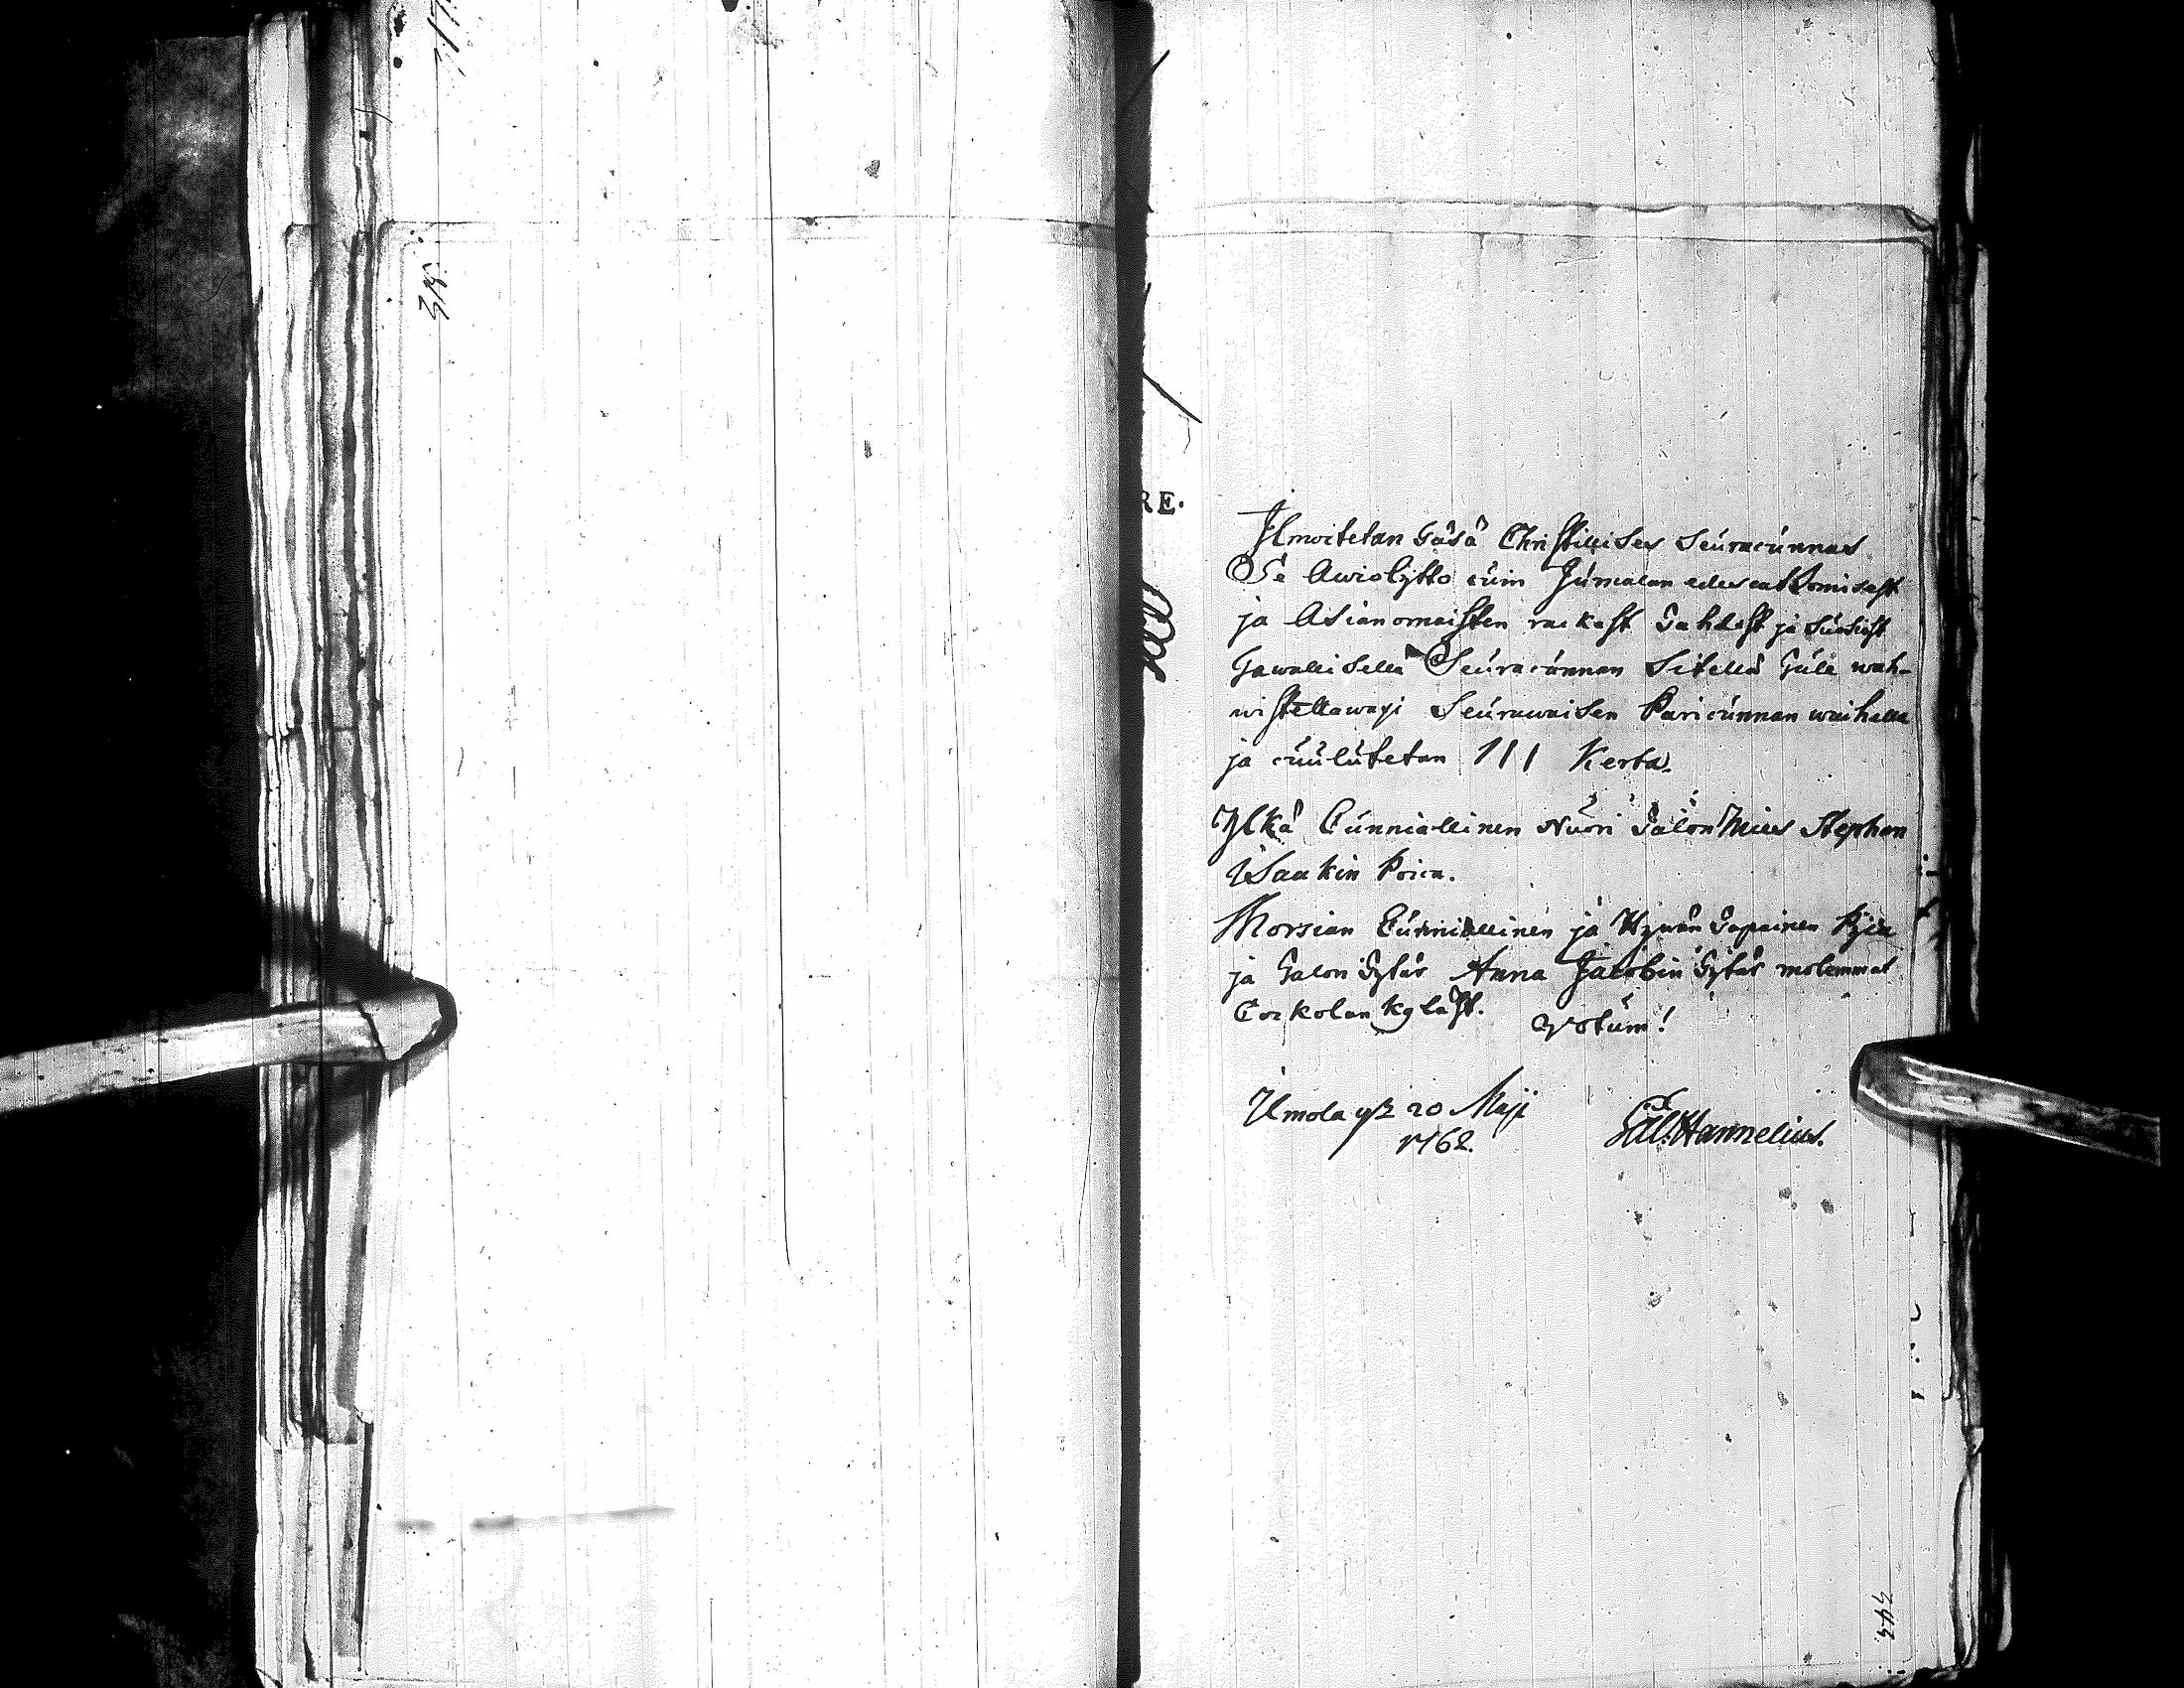 317.
318.
RE.
Ilmoitetan täsä Christillises Seuracunnas
Se Awiolijtto cuin Jumalan edescattomisest
ja Asianomaisten rackast tahdost ja suosiost
tawallisella Seuracunnan Sitellä tule wah-
wistettawaxi Seurawaisen Paricunnan waihella
ja cuulutetan III Kerta.
Ylkä Cunniallinen Nuori Talon Mies Stephan
Isaakin Poica.
Morsian Cunniallinen ja Hywän tapainen Pijca
ja Talon tytär Anna Jacobin tytär molemmat
Corkolan kyläst. Votum!
Ilmola 20 Maji
1762. Hannelius.